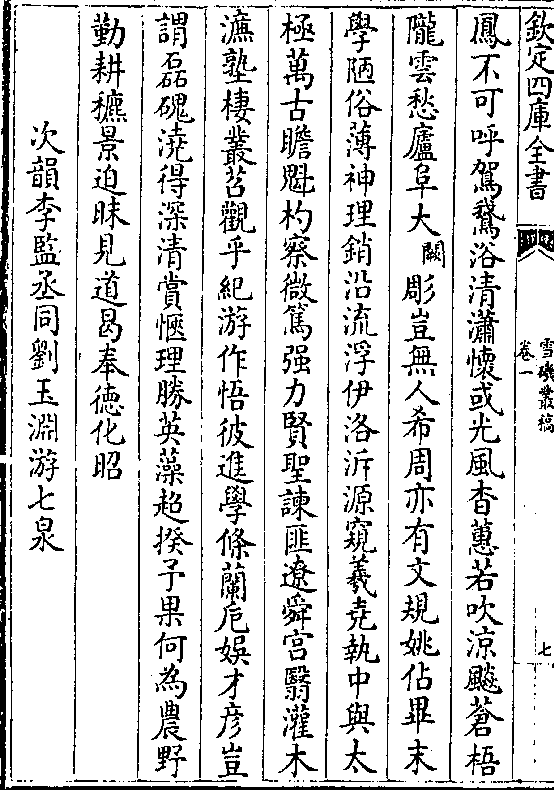 欽定四庫全書
雪磯叢稿
卷一
七
鳳不可呼駕鵞浴清瀟懷或光風杳蕙若吹涼飈蒼梧
隴雲愁廬阜大闕彫豈無人希周亦有文規姚佔畢末
學陋俗薄神理銷沿流浮伊洛泝源窺羲堯執中與太
極萬古瞻魁杓察微篤强力賢聖諫匪遼舜宮翳灌木
濂塾棲叢苕觀乎紀游作悟彼進學條蘭巵娛才彥豈
謂磊磈澆得深清賞愜理勝英藻超揆予果何為農野
勤耕穮景迫昧見道曷奉德化昭
次韻李監丞同劉玉淵游七泉